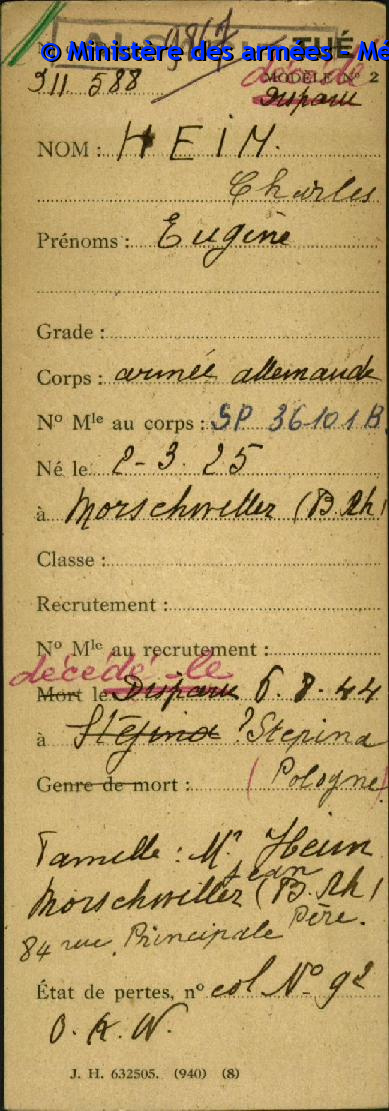 © Ministère des armées - Mé
9867 TUÉ
décédé
MODÈLE N° 2
911 588
Disparu
NOM : HEIM.
Charles
Prénoms : Eugène
Grade :
Corps : armée allemande
N° Mle au corps : SP 36101 B.
Né le 2-3. 25
à Morschwiller (B. Rh)
Classe :
Recrutement :
N° Mle au recrutement :
décédé le
Mort le Disparu 6.8.44
à Stéfina ? Stepina
Genre de mort : (Pologne)
Famille : Mr Heim
Jean
Morschwiller (B. Rh)
84 rue Principale Père.
État de pertes, n° col N° 92
O. K. W.
J. H. 632505. (940) (8)